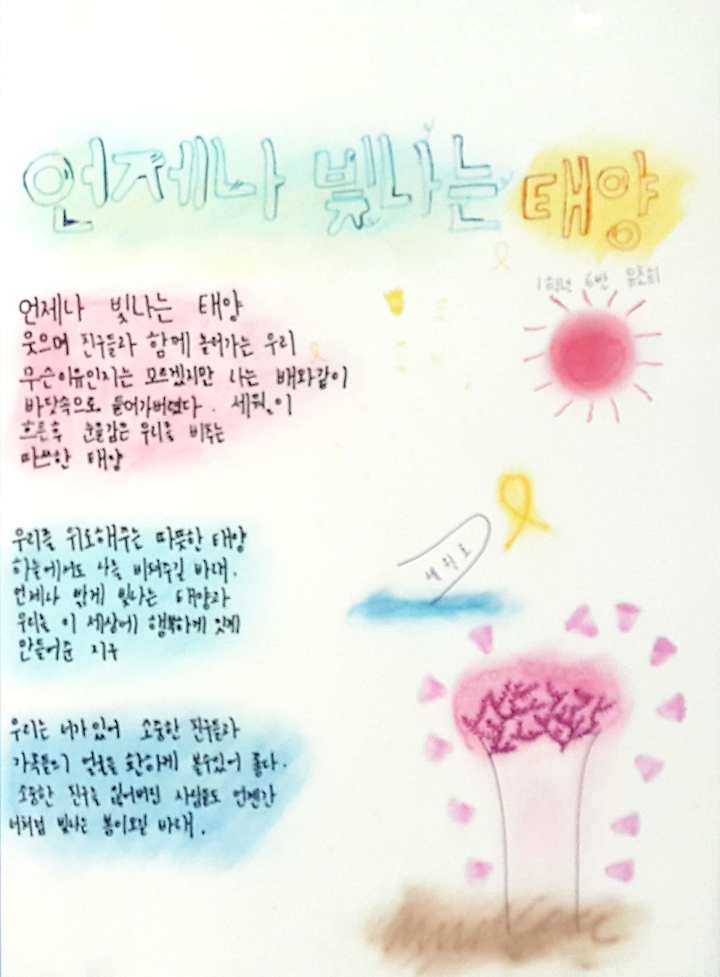 언제나 빛나는 태양
1학년 6반
언제나 빛나는 태양
웃으며 친구들과 함께 놀러가는 우리
무슨이유인지는 모르겠지만 나는 배와같이
바닷속으로 들어가버렸다. 세월이
흐른후 눈을감은 우리를 비추는
따쓰한 태양
세월호
우리를 위로해주는 따뜻한 태양
하늘에서도 나를 비춰주길 바래.
언제나 밝게 빛나는 태양과
우리를 이 세상에 행복하게 있게
만들어준 지구
우리는 너가있어 소중한 친구들과
가족들의 얼굴을 환하게 볼수있어 좋다.
소중한 친구를 잃어버린 사람들도 언젠간
너처럼 빛나는 봄이오길 바래.